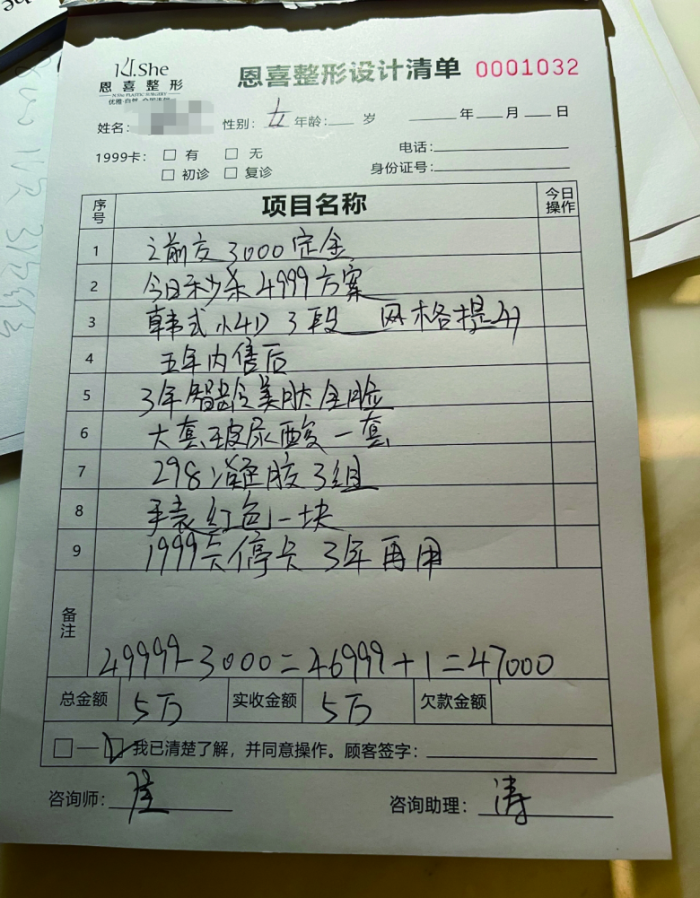 N.She
恩喜整形
恩喜整形设计清单 0001032
姓名: 性别: 女 年龄: 岁 年 月 日
1999卡: □ 有 □ 无 电话:
□ 初诊 □ 复诊 身份证号:
序号 项目名称 今日操作
1 之前交3000定金
2 今日秒杀4999方案
3 韩式小4D 3段 网格提升
4 五年内售后
5 3年智龄美肤全脸
6 大真玻尿酸一套
7 298凝胶3组
8 手表红包一块
9 1999卡停卡 3年再用
备注
49999-3000=46999+1=47000
总金额 5万 实收金额 5万 欠款金额
□—☑我已清楚了解,并同意操作。顾客签字:
咨询师: 咨询助理: 涛